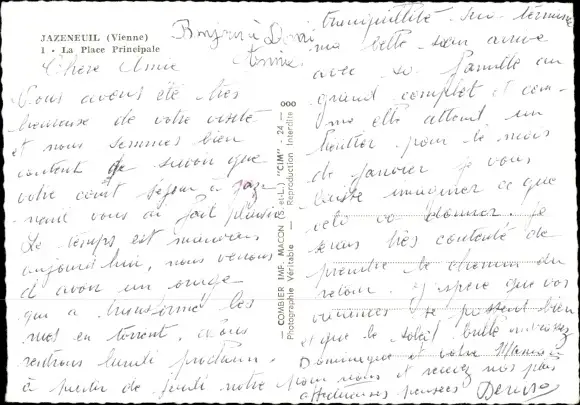 JAZENEUIL (Vienne)
1 - La Place Principale
Bonjour à
Chère Amie
Nous avons été très
heureuse de votre visite
et nous sommes bien
content de savoir que
votre court séjour à Jaze
neuil vous a fait plaisir
Le temps est mauvais
aujourd'hui, nous venons
d'avoir un orage
qui a transformé les
rues en torrent. Nous
rentrons lundi prochain.
à partir de jeudi notre
tranquillité sera terminée
ma belle-soeur arrive
avec sa famille au
grand complet et com-
me elle attend un
héritier pour le mois
de janvier je vous
laisse imaginer ce que
celà va donner. Je
serais très contente de
prendre le chemin du
retour. J'espère que vos
vacances se passent bien
et que le soleil brille
Dominique et votre Maman
pour nous et recevez nos plus
affectueuses pensées Denise
— COMBIER IMP. MACON (S.-et-L.) "CIM" - 24 —
Photographie Véritable - Reproduction Interdite